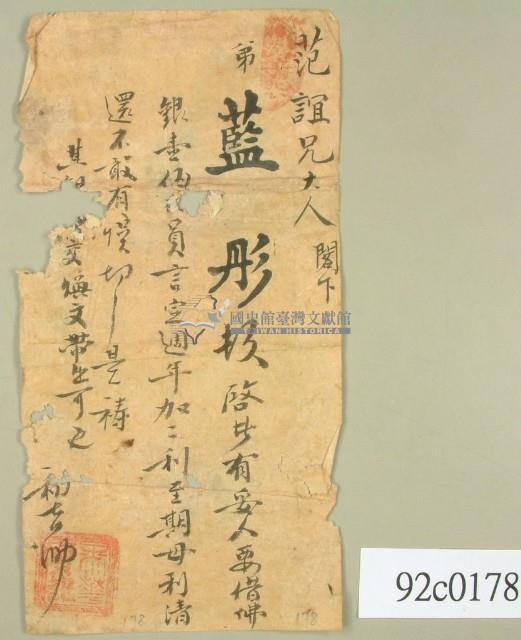 范誼兄大人閣下
弟藍彤 啓者有妥人要借佛
銀壹佰 員言定週年加二利至期母利清
還不敢有悞切切是禱
其 交煥文帶出可也
初吉冲
國史館臺灣文獻館
TAIWAN HISTORICA
92c0178
178
178